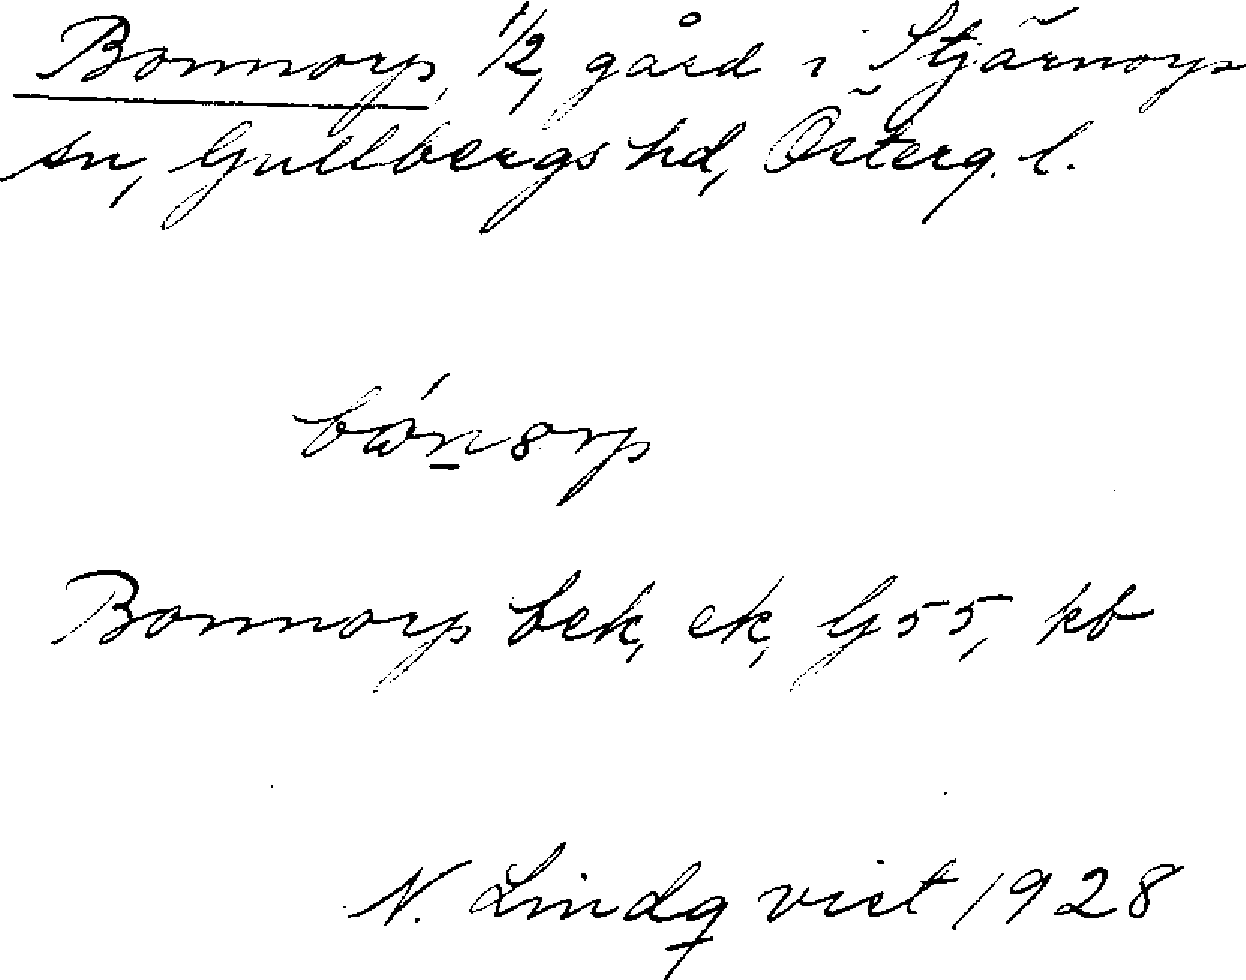 Bonnorp, 1/2, gård i Stjärnorp
sn, Gullbergs hd, Österg. l.
Bonnorp bek, ek, G55, kb
N. Lindqvist 1928